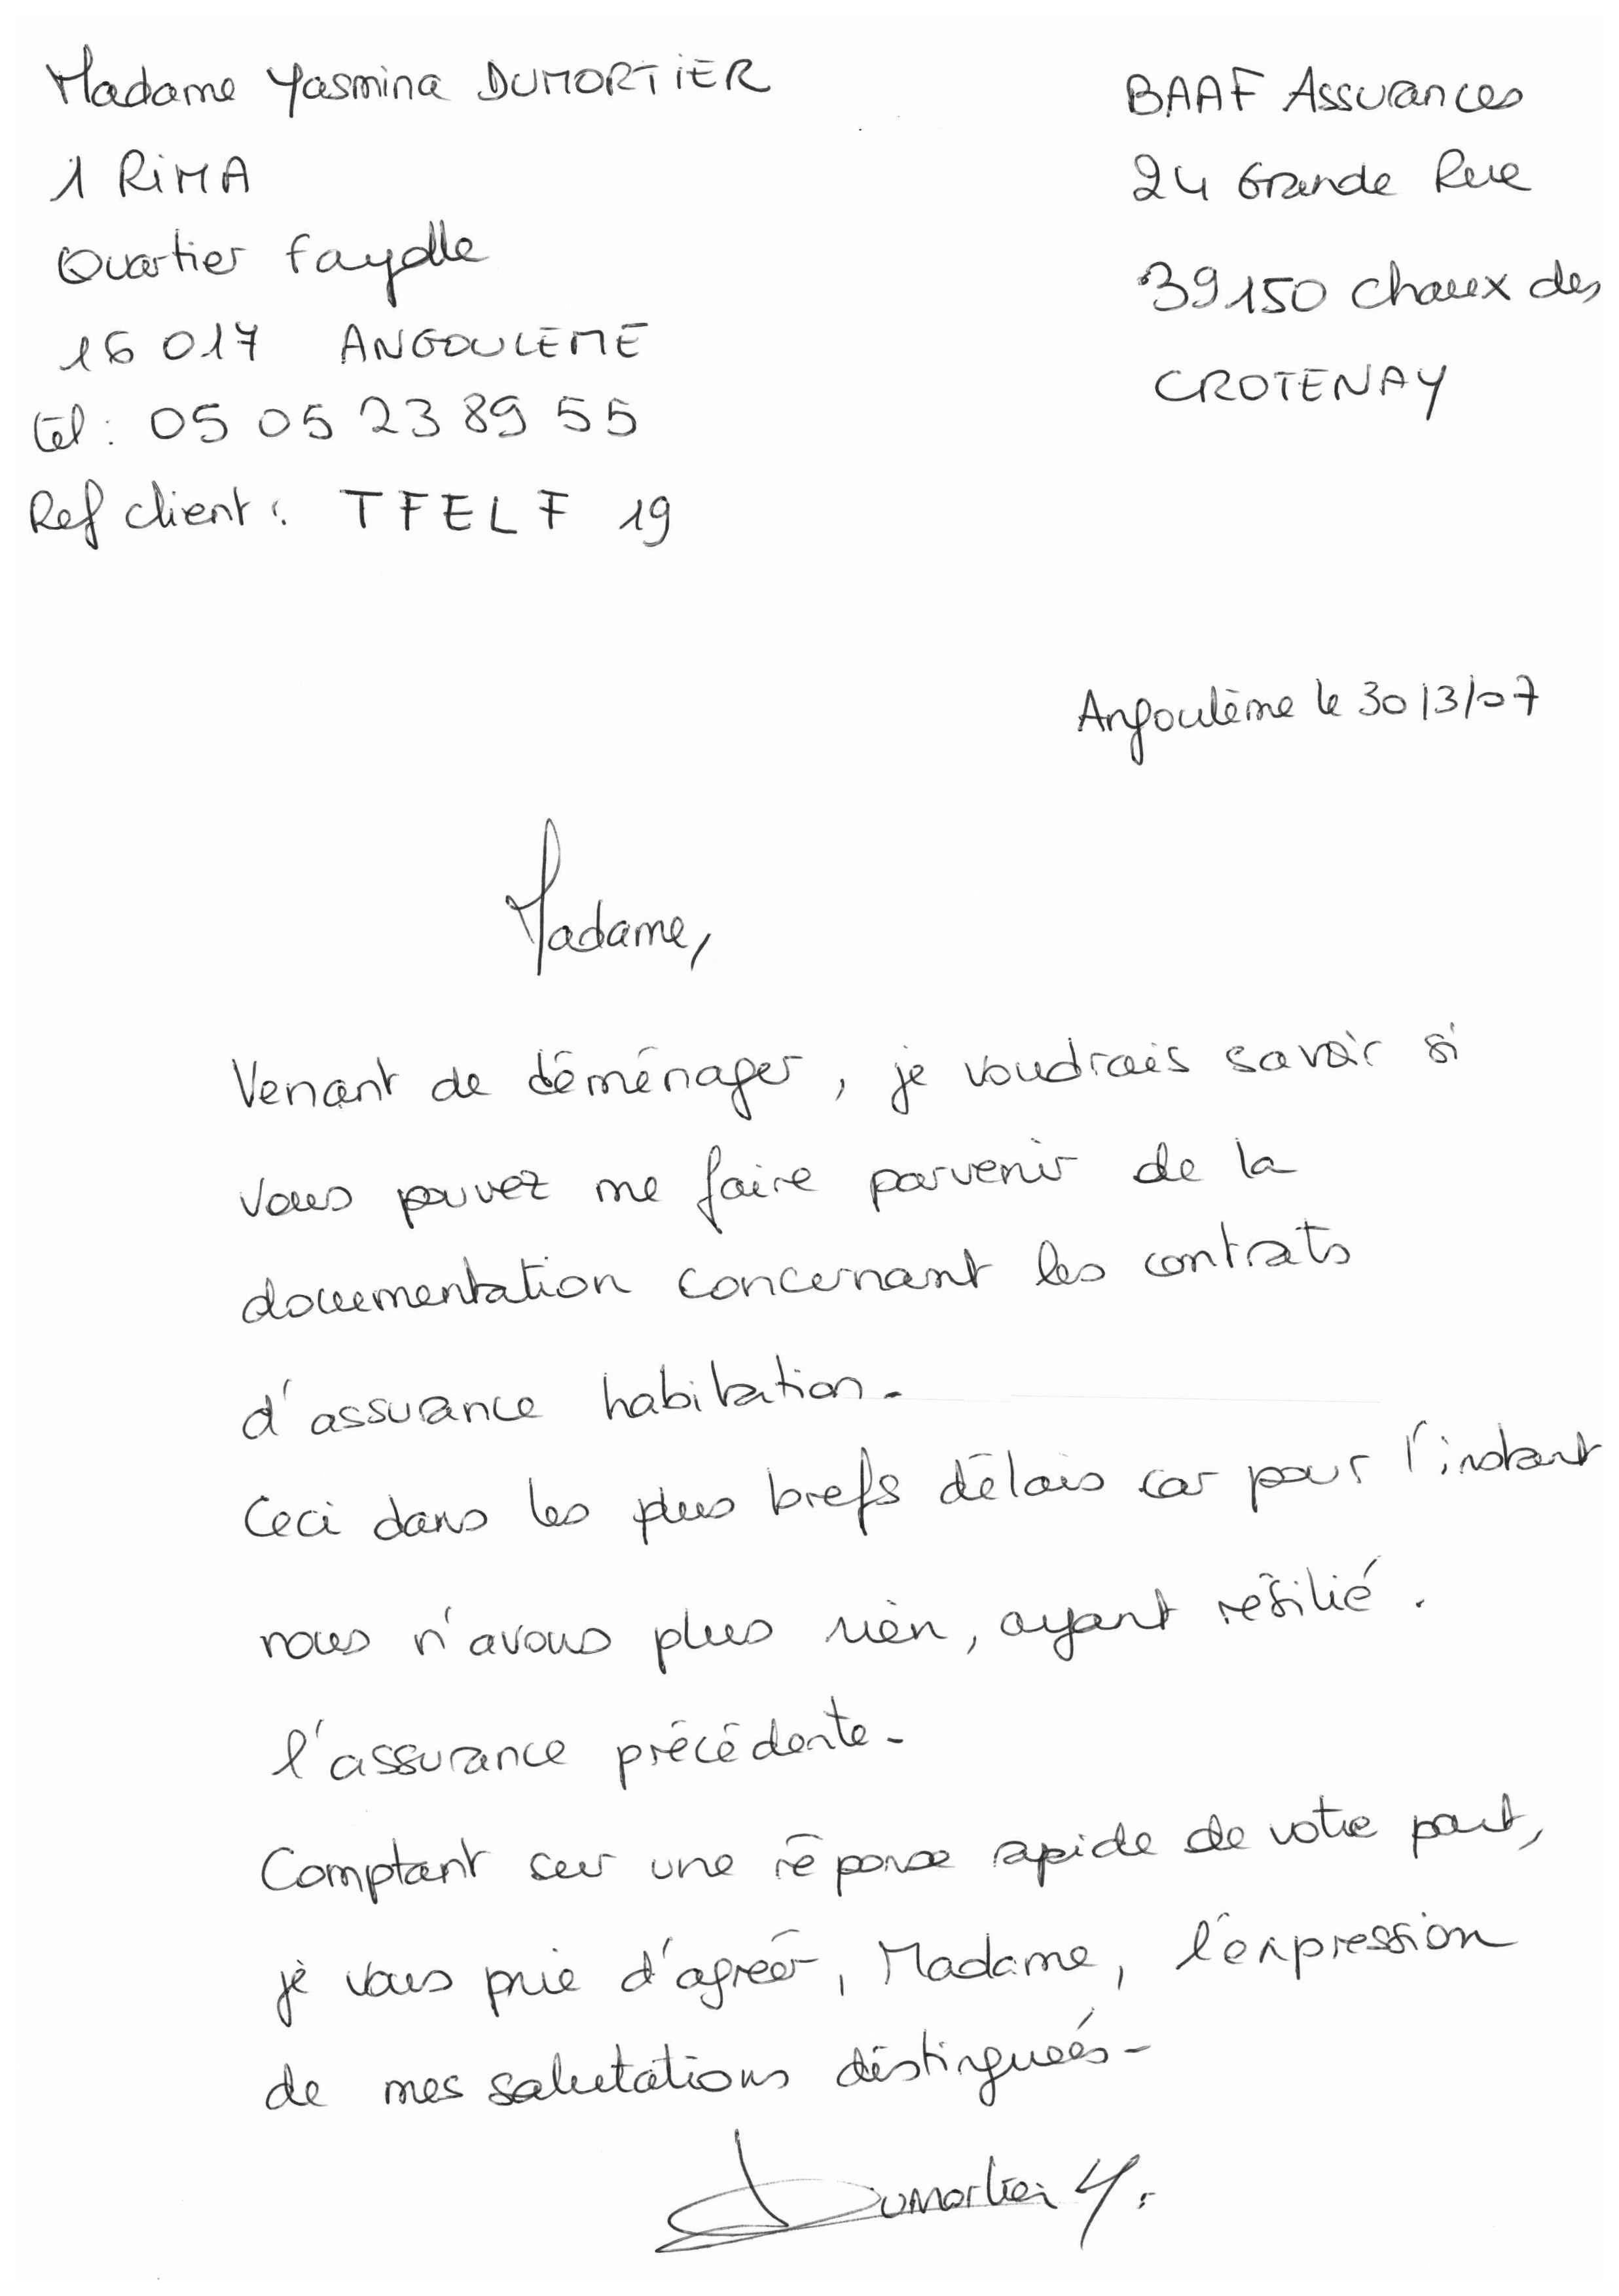 Madame Yasmina DUMORTIER
1 RiMA
Quartier Fayolle
16 017 ANGOULEME
tél : 05 05 23 89 55
Ref client : TFELF 19
BAAF Assurances
24 Grande Rue
39150 chaux des
CROTENAY
Angoulème le 30/3/07
Madame,
Venant de déménager, je voudrais savoir si
vous pouvez me faire parvenir de la
documentation concernant les contrats
d'assurance habitation.
Ceci dans les plus brefs délais car pour l'instant
nous n'avons plus rien, ayant résilié.
l'assurance précédente.
Comptant sur une réponse rapide de votre part,
je vous prie d'agréer, Madame, l'expression
de mes salutations distinguées-
Dumortier Y.